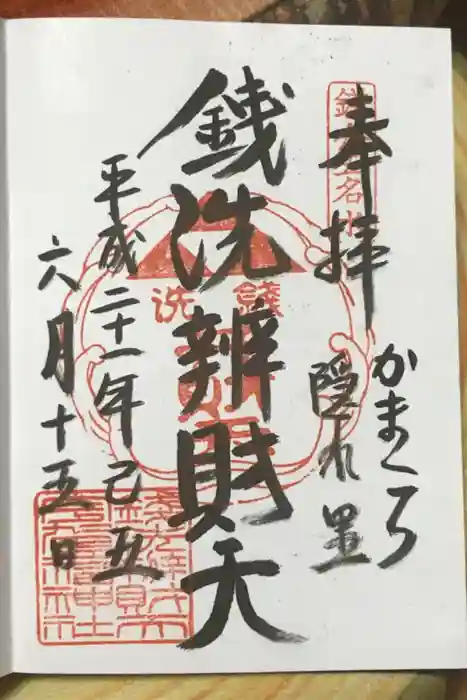 奉拝
かまくら
隠れ里
銭洗辨財天
平成二十一年己丑
六月十五日
錢洗